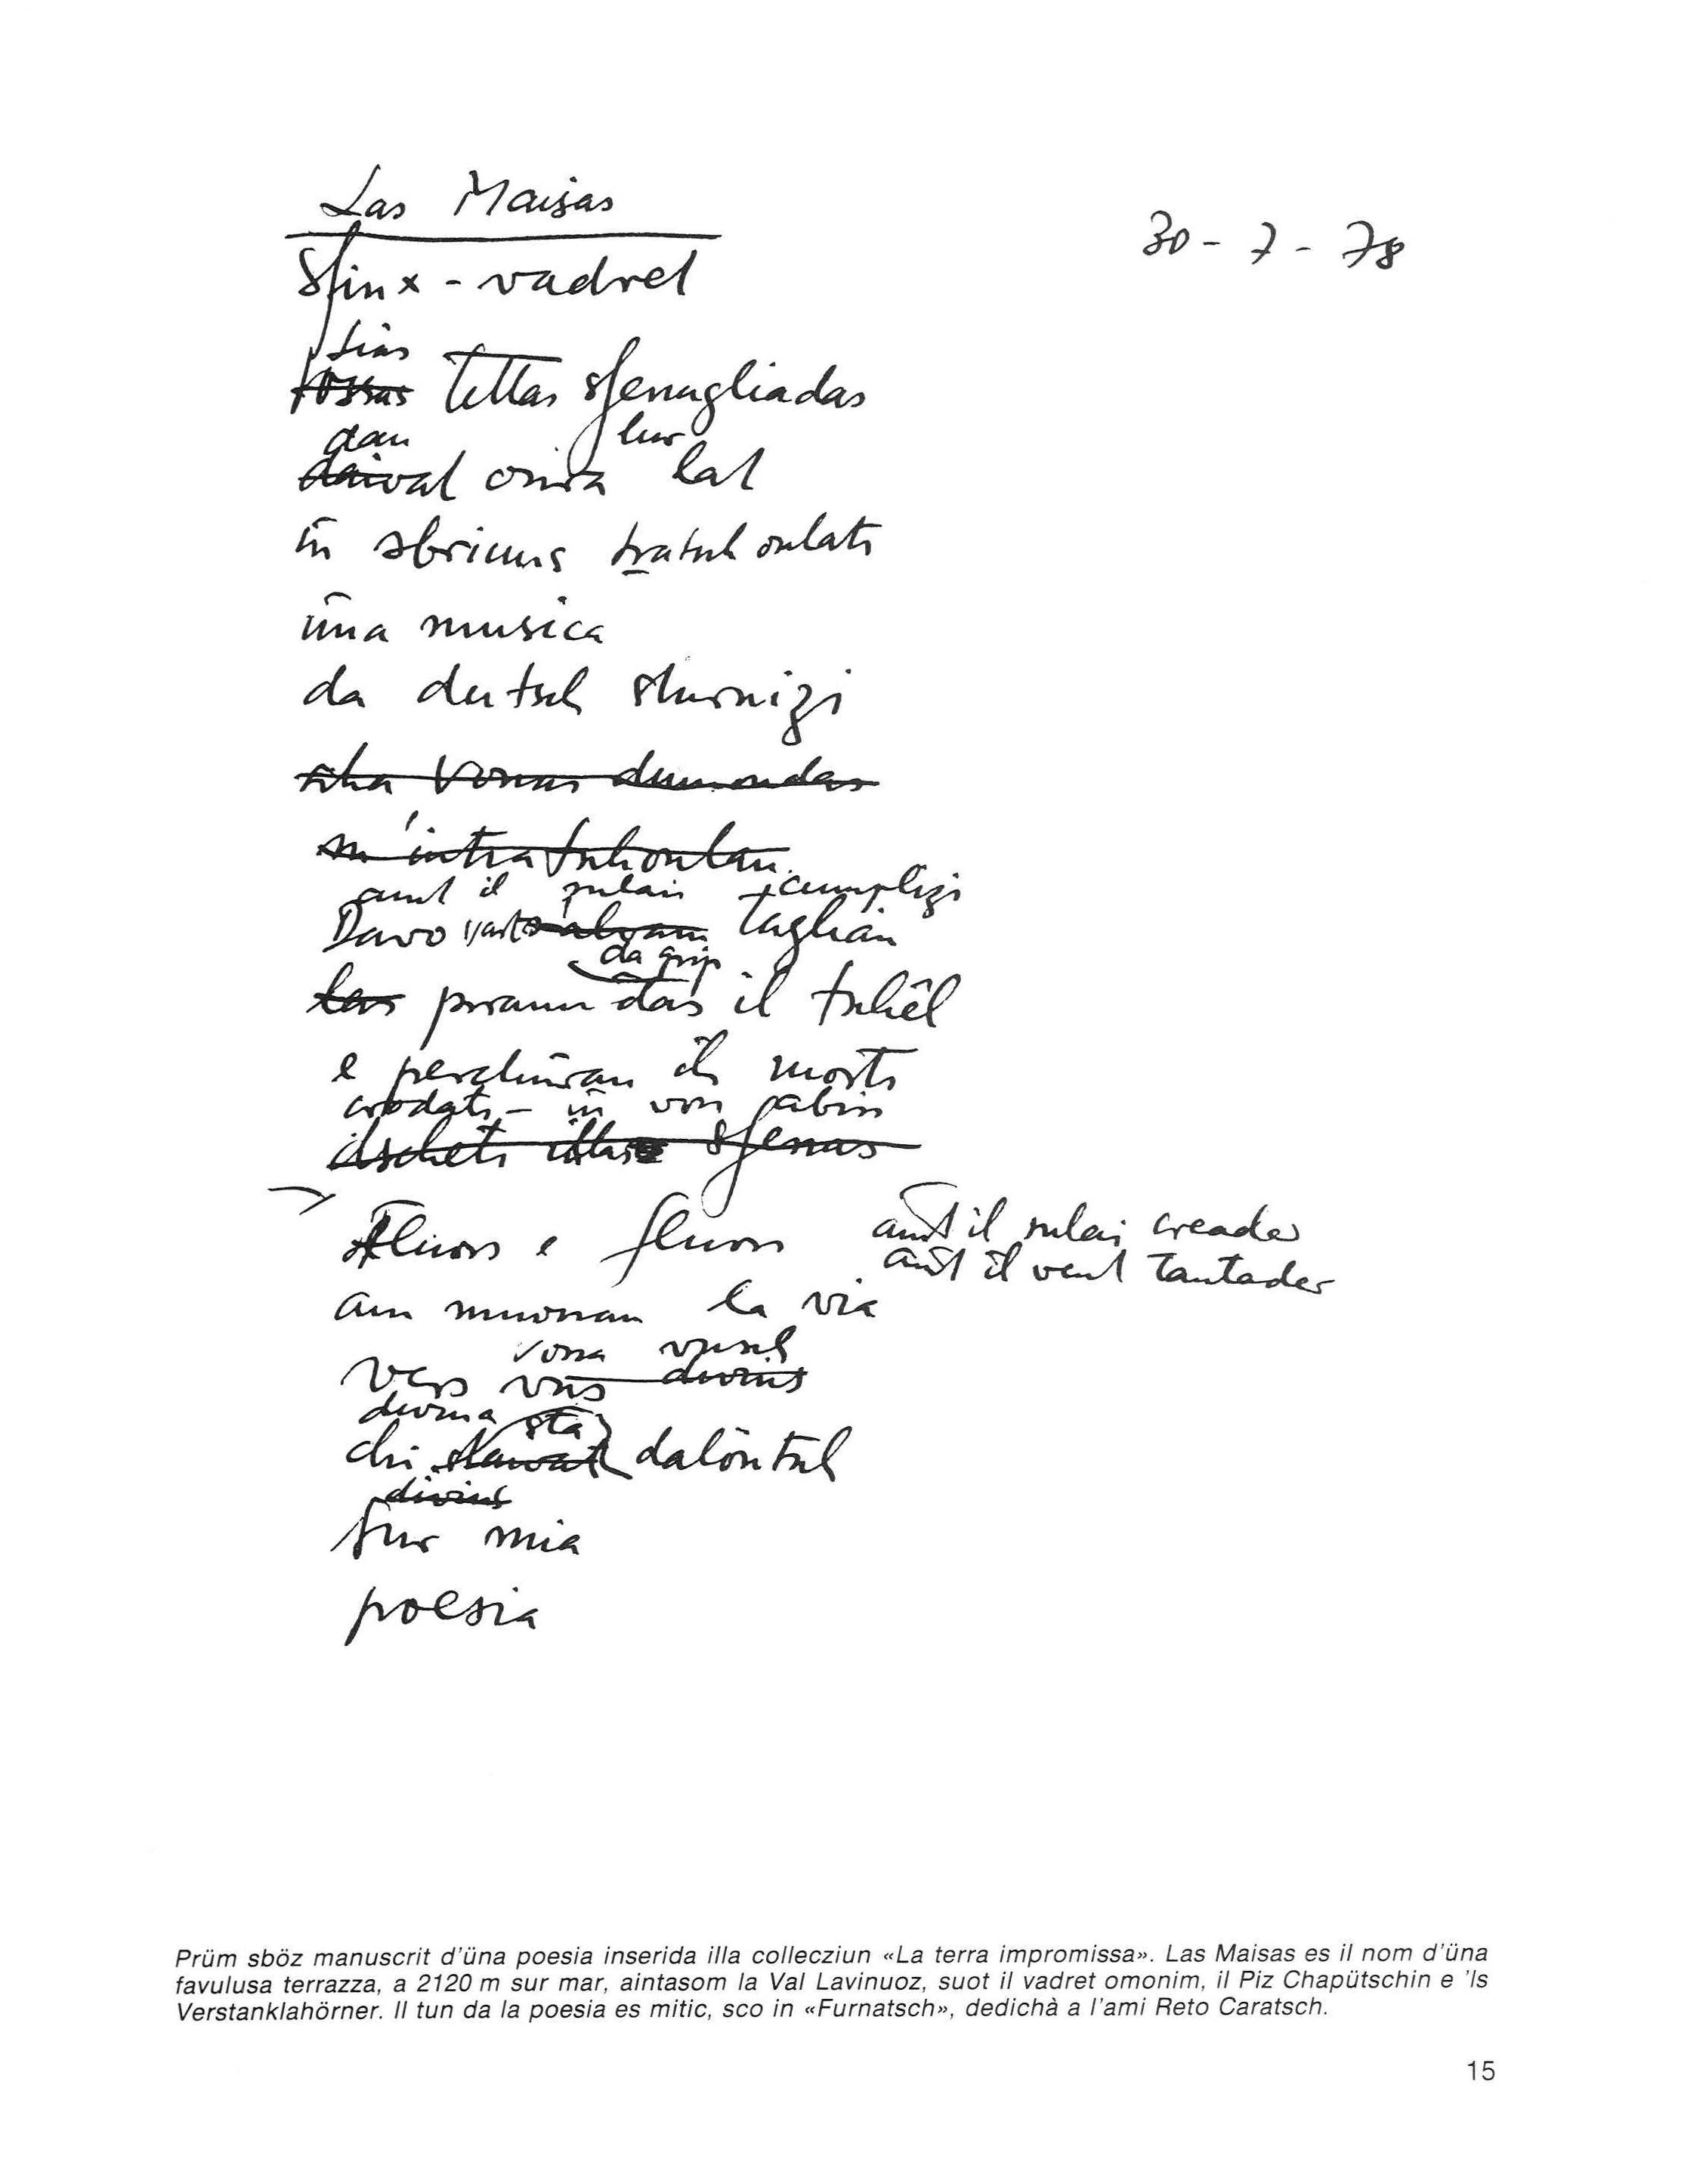 Las Maisas
30-7-78
Sfinx-vadret
tias
tettas sfenugliadas
dan lur
oura lat
in sbrinzs tratsch oulats
üna musica
da dutsch sturnizi
dumondas
aunt il sulai cumplizi
Davo taglian
da grip
las il tschêl
e perchüran ils morts
crodats - in von sabin
sfessas
Fluors e fluors
aunt il sulai creader
aunt il vent tantader
am muossan la via
vossa vusch
vers
divina
chi sta dalöntsch
divins
sur mia
poesia
Prüm sböz manuscrit d'üna poesia inserida illa collecziun «La terra impromissa». Las Maisas es il nom d'üna
favulusa terrazza, a 2120 m sur mar, aintasom la Val Lavinuoz, suot il vadret omonim, il Piz Chapütschin e 'ls
Verstanklahörner. Il tun da la poesia es mitic, sco in «Furnatsch», dedichà a l'ami Reto Caratsch.
15